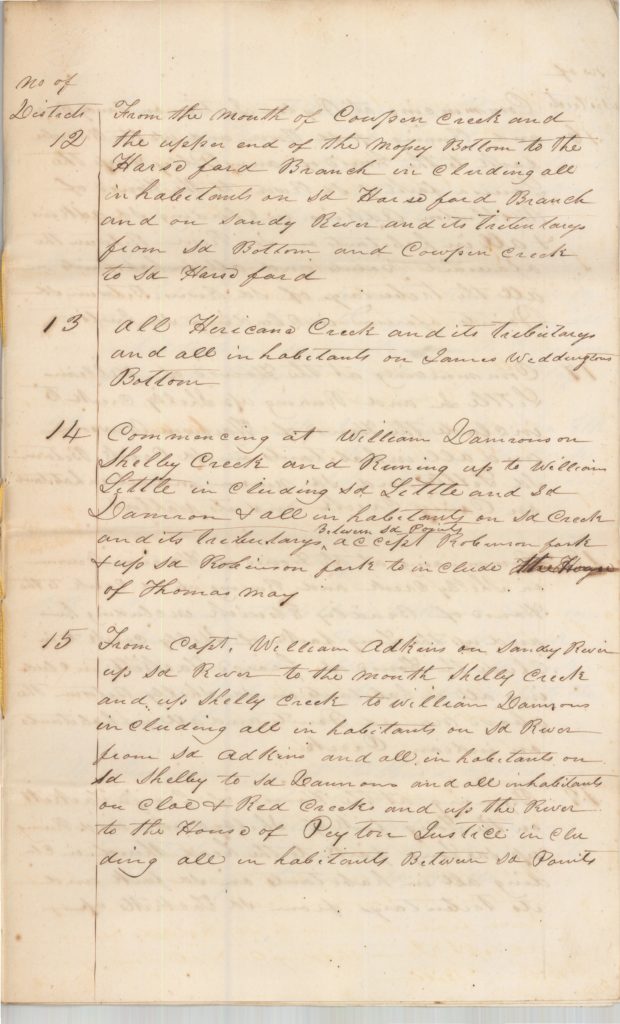 no of
Districts
12 From the mouth of Cowpen Creek and
the upper end of the Mossy Bottom to the
Harse fard Branch in Cluding all
in habitants on sd Harse fard Branch
and on Sandy River and its tributarys
from sd Bottom and Cowpen Creek
to sd Harse fard
13 All Hericane Creek and its tributarys
and all in habitants on James Weddingtons
Bottom
14 Commencing at William Damrons on
Shelby Creek and Runing up to William
Little in Cluding sd Little and sd
Damron & all in habitants on sd Creek
and its tributarys Between sd Points accept Robinson fark
& up sd Robinson fark to in clude the House
of Thomas May
15 From Capt. William Adkins on Sandy River
up sd River to the mouth Shelly Creek
and up Shelly Creek to William Damrons
in Cluding all in habitants on sd River
from sd Adkins and all in habitants on
sd Shelby to sd Damrons and all inhabitants
on Cloe & Red Creeks and up the River
to the House of Peyton Justice in Clu
ding all in habitants Between sd Points